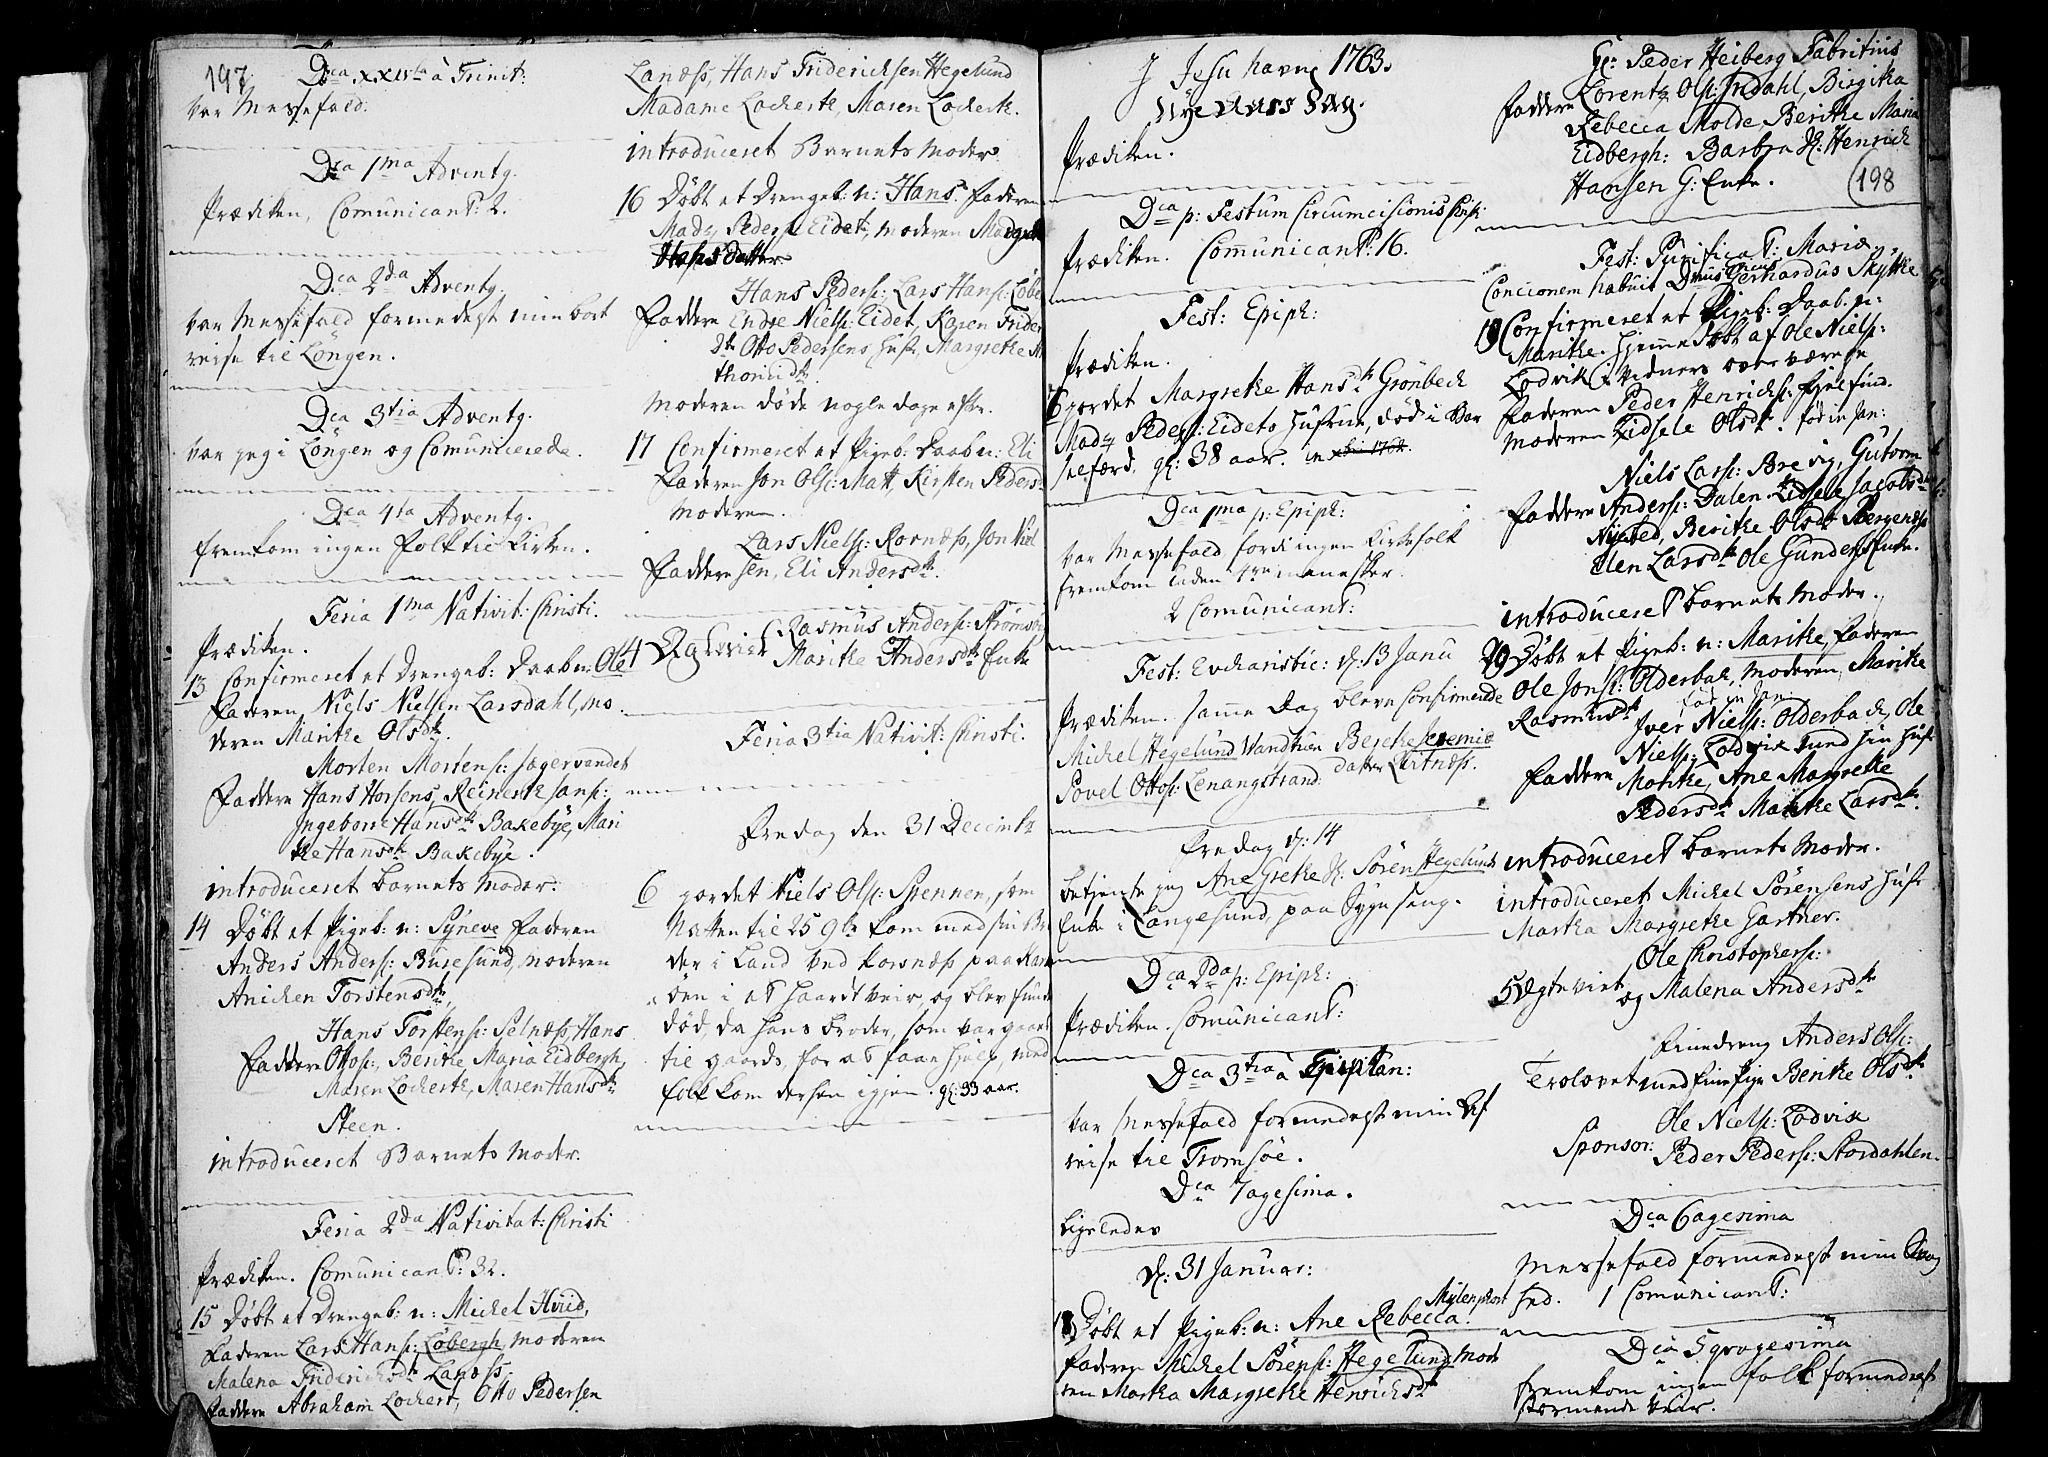 197.
Dca XXIVta à Trinit:
var Messefald.
Dca 1ma Adventg.
Prædiken, Comunicant: 2.
Dca 2da Adventg.
var Messefald formedelst min bort
reise til Löngen.
Dca 3tia Adventg.
var jeg i Löngen og Comunicerede.
Dca 4ta Adventg.
fremkom ingen folk til Kirken.
Feria 1ma Nativit: Christi.
Prædiken.
13 Confirmeret et Drengeb: Daab n: Ole
Faderen, Niels Nielsen Larsdahl, mo
deren Maritke Olsdtr.
Morten Mortens: Jægervandet
Faddere Hans Horsens, Reinert Jans:
Ingeborre Hansdtr Bakebye, Mari
the Hansdtr Bakebye.
introduceret barnets Moder.
14 Døbt et Pigeb: n: Syneve Faderen
Anders Anders: Buresund, moderen
Anichen Torstensdtr,
Hans Torstens: Selnæss, Hans
Faddere Ottos:, Beritke Maria Eidbergh,
Maren Lockerte, Maren Hansdtr
Steen.
introduceret Barnets Moder.
Feria 2da Nativitat: Christi
Prædiken. Comunicant: 32.
15 Døbt et Drengeb: n: Michel Hvid,
Faderen Lars Hans: Løbergh, moderen
Malena Friderichsdtr Lanæss.
Faddere Abraham Lockert, Otto Pedersen
Lanæss, Hans Friderichsen Hegelund
Madame Lockerte, Maren Lockerte.
introduceret Barnets Moder
16 Døbt et Drengeb: n: Hans. Faderen
Mads Peders: Eidet, moderen Margrethe
Hansdatter
Hans Peders:, Lars Hans: Løbe
Faddere Endre Niels: Eidet, Karen Frider
dtr Otto Pedersens Hust, Margretke
Thomsdtr.
Moderen døde nogle dage efter.
17 Confirmeret et Pigeb: Daab n: Eli
Faderen Jon Ols: Matt, Kirsten Peders
Moderen.
Lars Niels: Rovnæss, Jon Niel
Faddere sen, Eli Andersdtr.
4 Ægteviet Rasmus Anders: Strøms
Maritke Andersdtr Enke
Feria 3tia Nativit: Christi.
Fredag den 31 Decembr
6 jordet Niels Ols: Spennen, som
Natten til 25 9br kom med sin Bro
der i Land ved Korsnæss paa Karls
øen i et haardt veir, og blev funden
død, da hans broder, som var gaaet
til gaards, for at faae hielp, med
folk kom dersen igjen. gl: 33 aar.
J Jesu havne 1763.
Nye Aars Dag.
Prædiken.
Dca p: Festum Circumcisionis Christi
Prædiken. Communicant: 16.
Fest: Epiph:
Prædiken.
6 jordet Margretke Hansdtr Grönbeck
Mads Peders: Eidets Hustrue, død i Bar
selfærd. gl: 38 aar.
Dca 1ma p: Epiph:
var Messefald fordi ingen Kirkefolk
fremkom uden 4re mennesker.
2 Comunicant:
Fest: Eucharistic: d: 13 Janu
Prædiken. samme dag bleve Confirmerede
Michel Hegelund Vandtuen Berethe Jeremiæ
Povel Ottos: Lenangstrand. datter Lertnæss.
Fredag d: 14
betjente jeg Ane Gretke Sl: Sören Hegelunds
Enke i Langesund, paa Sygeseng.
Dca 2da p: Epiph:
Prædiken. Comunicant:
Dca 3tia à Epiphan:
var Messefald formedelst min Af
reise til Tromsöe.
Dca 7agesima.
ligeledes
d: 31 Januar:
18 Døbt et Pigeb: n: Ane Rebecca. Mylenphort
Faderen Michel Sörens: Hegelund, Mode
ren Martha Margretke Henrichsdtr
Hr: Peder Heiberg Fabritius
Faddere Lorentz Ols: Indahl, Birgitka
Rebecca Molde, Beritke Maria
Eidbergh: Barbra Sl: Henrich
Hansen G: Enke.
198
Fest: Purificat: Mariæ
Concionem habuit Dnus Gerhardus Skytte
19 Confirmeret et Pigeb: Daab n:
Maritke. Hjemmedøbt af Ole Niels:
Lodvik i Vidners overværelse
Faderen Peder Henrichs: Fjelfind.
Moderen Zidsele Olsdtr. fød in Jan:
Niels Lars: Brevig, Gutorm
Faddere Anders: Dalen, Zidsele Jacobsdtr
Nysted, Beritke Olsdtr Bergenæss
Elen Larsdtr Ole Gunders: Enke.
introduceret barnets Moder.
20 Døbt et Pigeb: n: Maritke, Faderen
Ole Jons: Olderbak, moderen, Maritke
Rasmusdtr fød in Jan:
Iver Niels: Olderback, Ole
Niels: Lodvik sund hin Hust
Faddere Motike, Ane Margretke
Pedersdtr Maritke Larsdtr.
introduceret barnets Moder.
introduceret Michel Sörensens Hust
Martha Margretke Gartner.
Ole Christophers:
5 Ægteviet og Malena Andersdtr
Friedreng Anders Ols:
Trolovet med sine Pige Beritke Olsdtr
Ole Niels: Lodvik
Sponsor: Peder Peders: Stordahlen.
Dca 6agesima
Messefald formedelst min Svag
hed. 1 Comunicant:
Dca 5qvagesima
fremkom ingen folk formedelst
stormende Veir.